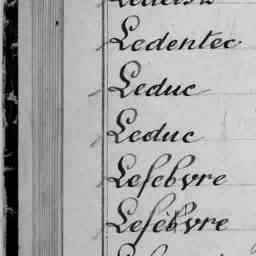 Ledentec
Leduc
Leduc
Lefebvre
Lefèbvre